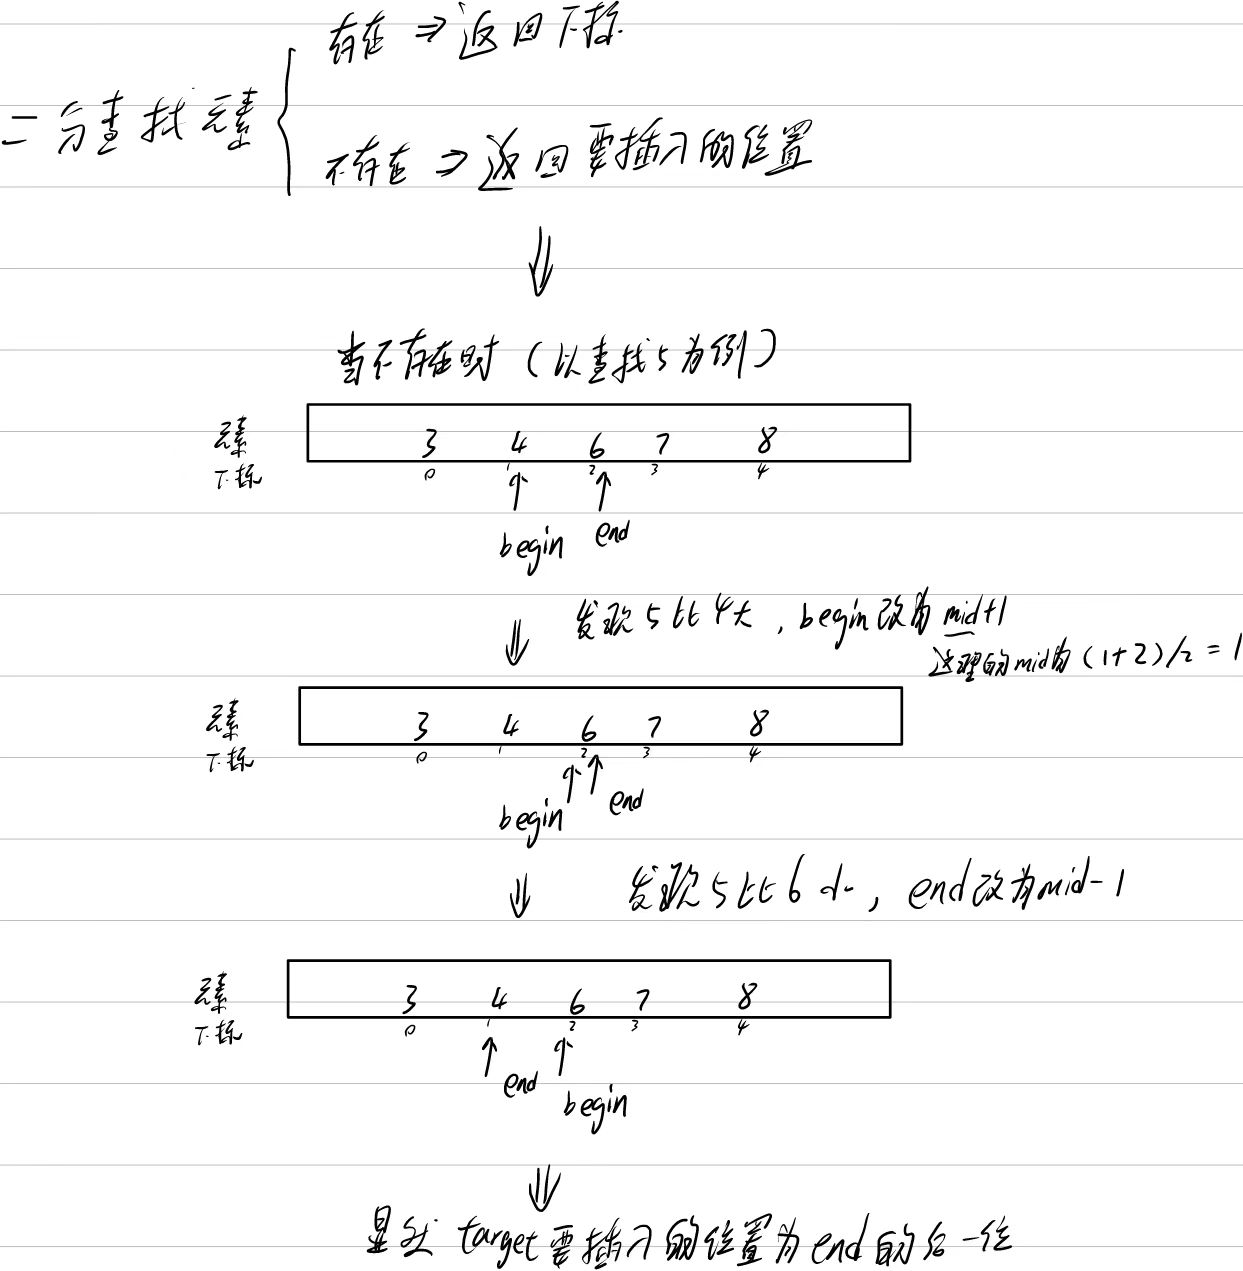 存在 ⇒ 返回下标
二分查找元素
不存在 ⇒ 返回要插入的位置
当不存在时（以查找5为例）
元素 3 4 6 7 8
下标 0 1 2 3 4
begin end
发现5比4大，begin改为mid+1
这里的mid为(1+2)/2=1
元素 3 4 6 7 8
下标 0 1 2 3 4
begin end
发现5比6小，end改为mid-1
元素 3 4 6 7 8
下标 0 1 2 3 4
end begin
显然 target要插入的位置为end的后一位